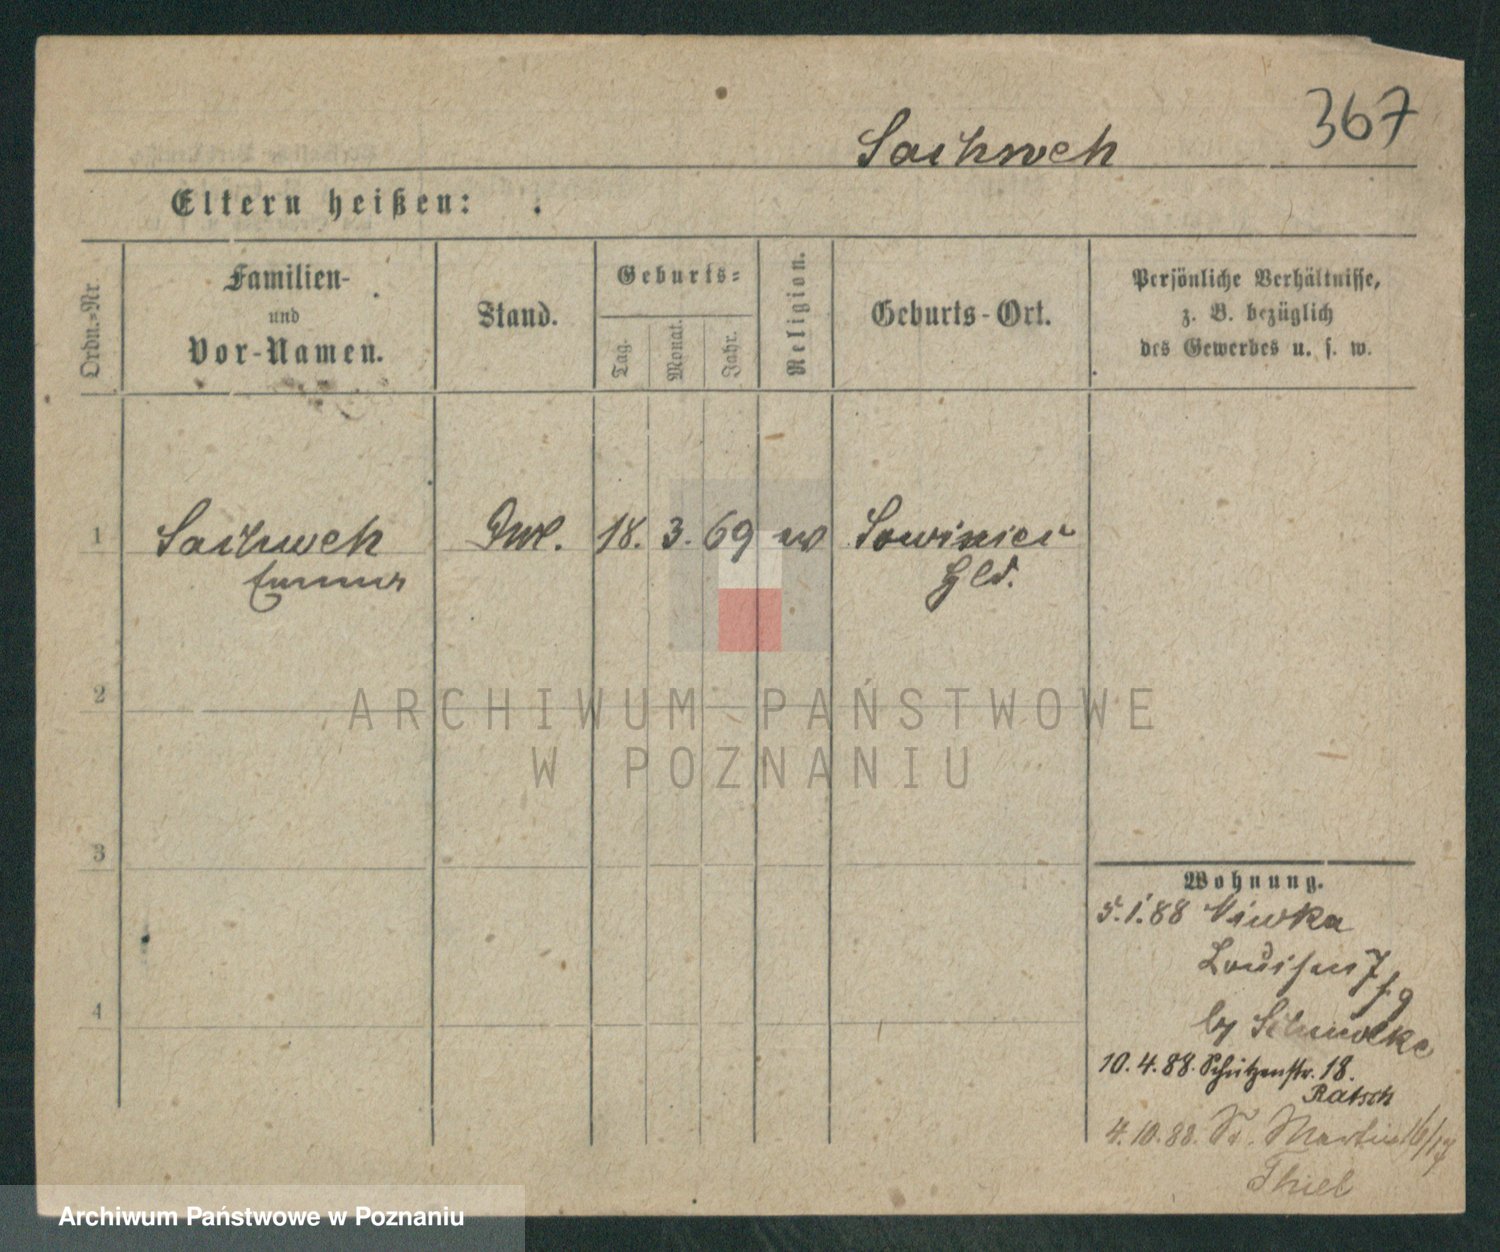 367
Sachweh
Eltern heißen:
Ordn.-Nr.
Familien-
und
Vor-Namen.
Stand.
Geburts-
Tag.
Monat.
Jahr.
Religion.
Geburts-Ort.
Persönliche Verhältnisse,
z. B. bezüglich
des Gewerbes u. s. w.
1
Sachweh
Emma
18. 3. 69
Sowiniec
2
ARCHIWUM PAŃSTWOWE
W POZNANIU
3
4
Wohnung.
5.1.88
Louisen
10.4.88. Schützenstr. 18.
Ratsch
4.10.88. St. Martin 16/17
Thiel
Archiwum Państwowe w Poznaniu